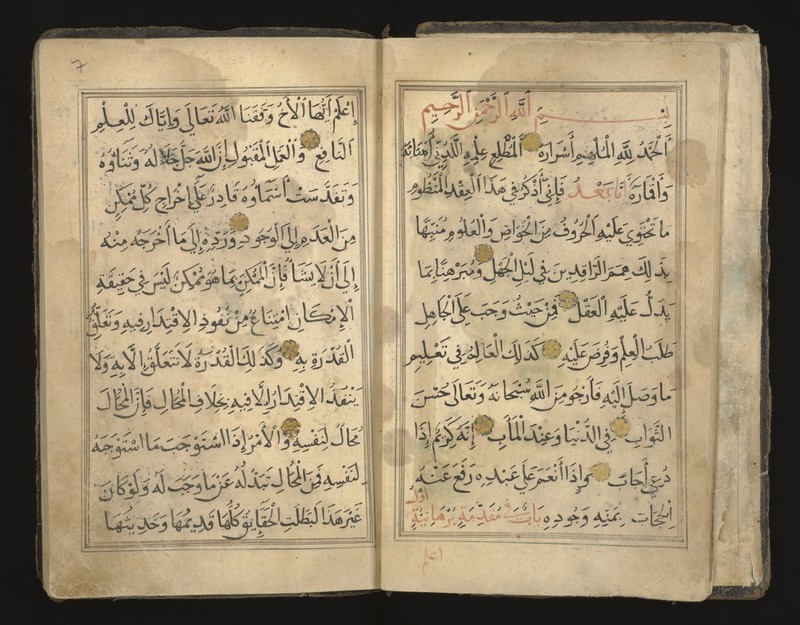 بسم الله الرحمن الرحيم
الحمد لله الملهم أسراره المطلع علمه اللدني أهلته
وأقماره أما بعد فإني أذكر في هذا العقد المنظوم
ما تحتوي عليه الحروف من الخواص والعلوم منبها
بذلك همم الراقدين في ليل الجهل ومبرهنا بما
يدل عليه العقل فمن حيث وجب على الجاهل
طلب العلم وفرض عليه كذلك العالم في تعليم
ما وصل إليه فأرجو من الله سبحانه وتعالى حسن
الثواب في الدنيا وعند المآب إنه كريم إذا
دعي أجاب كما إذا أنعم على عبده رفع عنه
الحجاب بمنه وجوده باب في مقدمة برهانية
اول
اعلم
٦
إعلم أيها الأخ وفقنا الله تعالى وإياك للعلم
النافع والعمل المقبول إن الله جل جلاله وثناؤه
وتقدست أسماؤه قادر على إخراج كل ممكن
من العدم إلى الوجود ورده إلى ما أخرجه منه
إلى أن لا يشأ فإن الممكن بما هو ممكن ليس في حقيقة
الإمكان امتناع من نفوذ الاقتدار فيه وتعلق
القدرة به وكذلك القدرة لا تتعلق إلا به ولا
ينفذ الاقتدار إلا فيه بخلاف المحال فإن المحال
محال لنفسه والأمر إذا استوجب ما استوجبه
لنفسه فمن المحال تبدله عن ما وجب له ولو كان
غير هذا لبطلت الحقايق كلها قديمها وحديثها